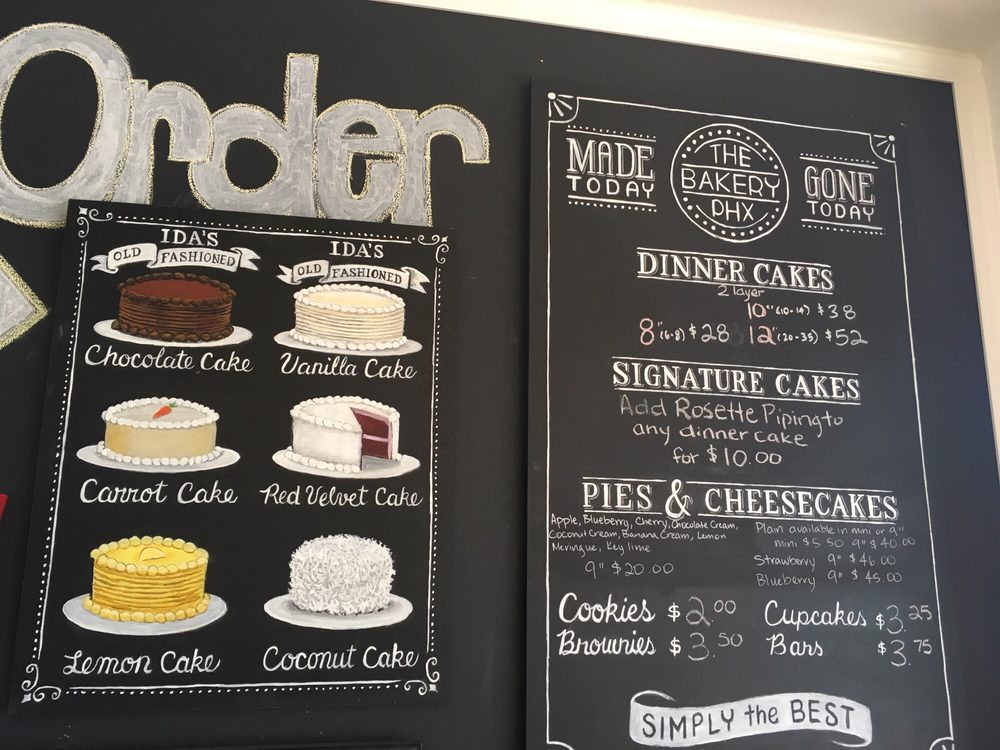 Order
IDA'S
OLD FASHIONED
Chocolate Cake
IDA'S
OLD FASHIONED
Vanilla Cake
Carrot Cake
Red Velvet Cake
Lemon Cake
Coconut Cake
MADE
TODAY
THE
BAKERY
PHX
GONE
TODAY
DINNER CAKES
2 layer
10" (10-14) $38
8" (6-8) $28 12" (20-35) $52
SIGNATURE CAKES
Add Rosette Piping to
any dinner cake
for $10.00
PIES & CHEESECAKES
Apple, Blueberry, Cherry, Chocolate Cream,
Coconut Cream, Banana Cream, Lemon
Meringue, Key lime
9" $20.00
Plain available in mini or 9"
mini $5.50 9" $40.00
Strawberry 9" $46.00
Blueberry 9" $45.00
Cookies $2.00
Brownies $3.50
Cupcakes $3.25
Bars $3.75
SIMPLY the BEST